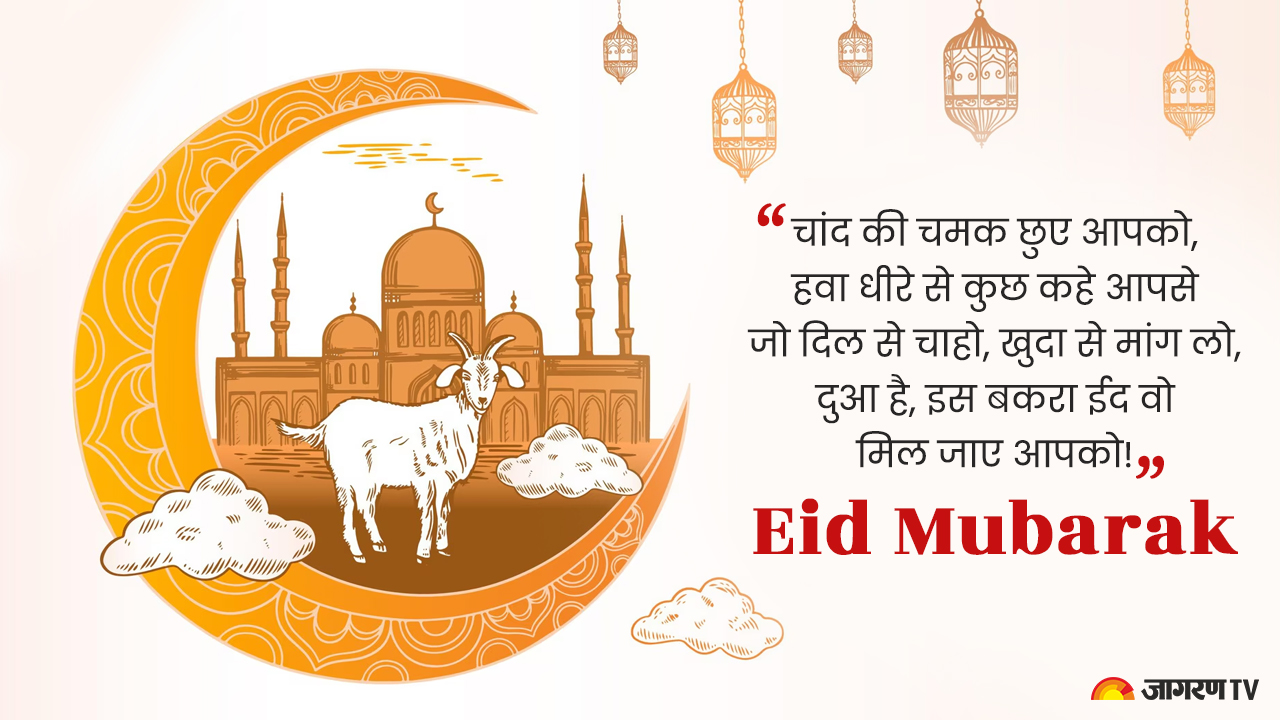 “ चांद की चमक छुए आपको,
हवा धीरे से कुछ कहे आपसे
जो दिल से चाहो, खुदा से मांग लो,
दुआ है, इस बकरा ईद वो
मिल जाए आपको! ”
Eid Mubarak
जागरण TV